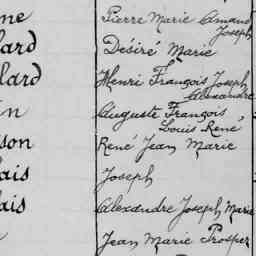 ne Pierre Marie Amand
Joseph
lard Désiré Marie
llard Henri François Joseph
Alexandre
in Auguste François
Louis René
son René Jean Marie
lais Joseph
lais Alexandre Joseph Marie
Jean Marie Prosper